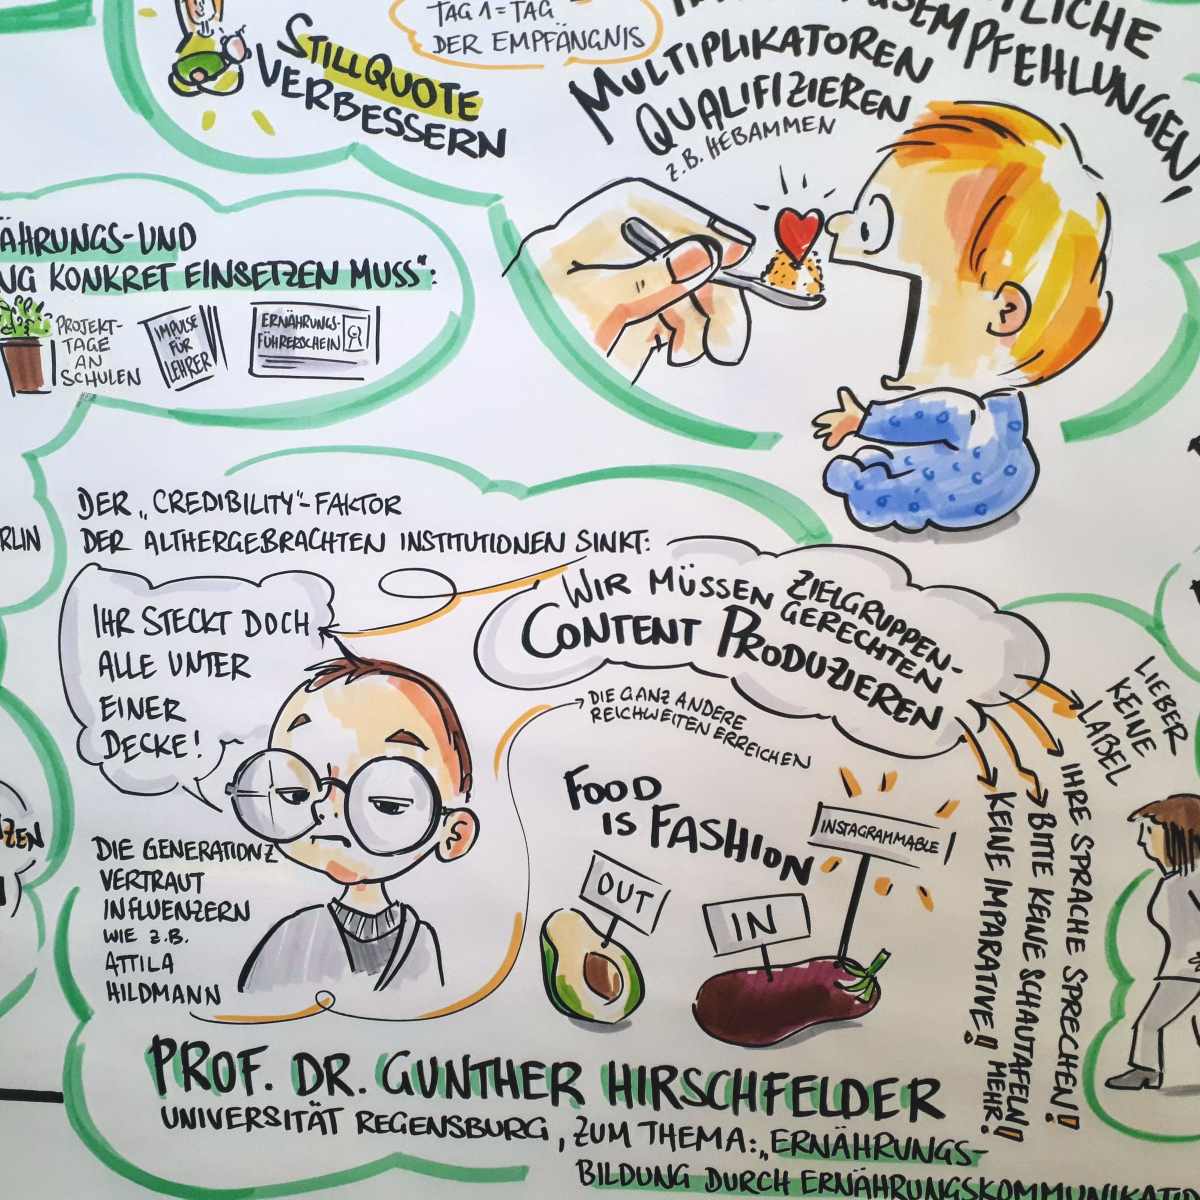 TAG 1 = TAG
DER EMPFÄNGNIS
STILLQUOTE
VERBESSERN
MULTIPLIKATOREN
QUALIFIZIEREN
Z.B. HEBAMMEN
EMPFEHLUNGEN,
ÄHRUNGS- UND
NG KONKRET EINSETZEN MUSS":
PROJEKT-
TAGE
AN
SCHULEN
IMPULSE
FÜR
LEHRER
ERNÄHRUNGS-
FÜHRERSCHEIN
RLIN
DER „CREDIBILITY"-FAKTOR
DER ALTHERGEBRACHTEN INSTITUTIONEN SINKT:
IHR STECKT DOCH
ALLE UNTER
EINER
DECKE!
WIR MÜSSEN ZIELGRUPPEN-
GERECHTEN
CONTENT PRODUZIEREN
DIE GANZ ANDERE
REICHWEITEN ERREICHEN
LIEBER
KEINE
LABEL
IHRE SPRACHE SPRECHEN!
BITTE KEINE SCHAUTAFELN MEHR!
KEINE IMPARATIVE!
FOOD
IS FASHION
INSTAGRAMMABLE
OUT
IN
ZEN
DIE GENERATION Z
VERTRAUT
INFLUENZERN
WIE Z.B.
ATTILA
HILDMANN
PROF. DR. GUNTHER HIRSCHFELDER
UNIVERSITÄT REGENSBURG, ZUM THEMA: „ERNÄHRUNGS-
BILDUNG DURCH ERNÄHRUNGSKOMMUNIKATIO